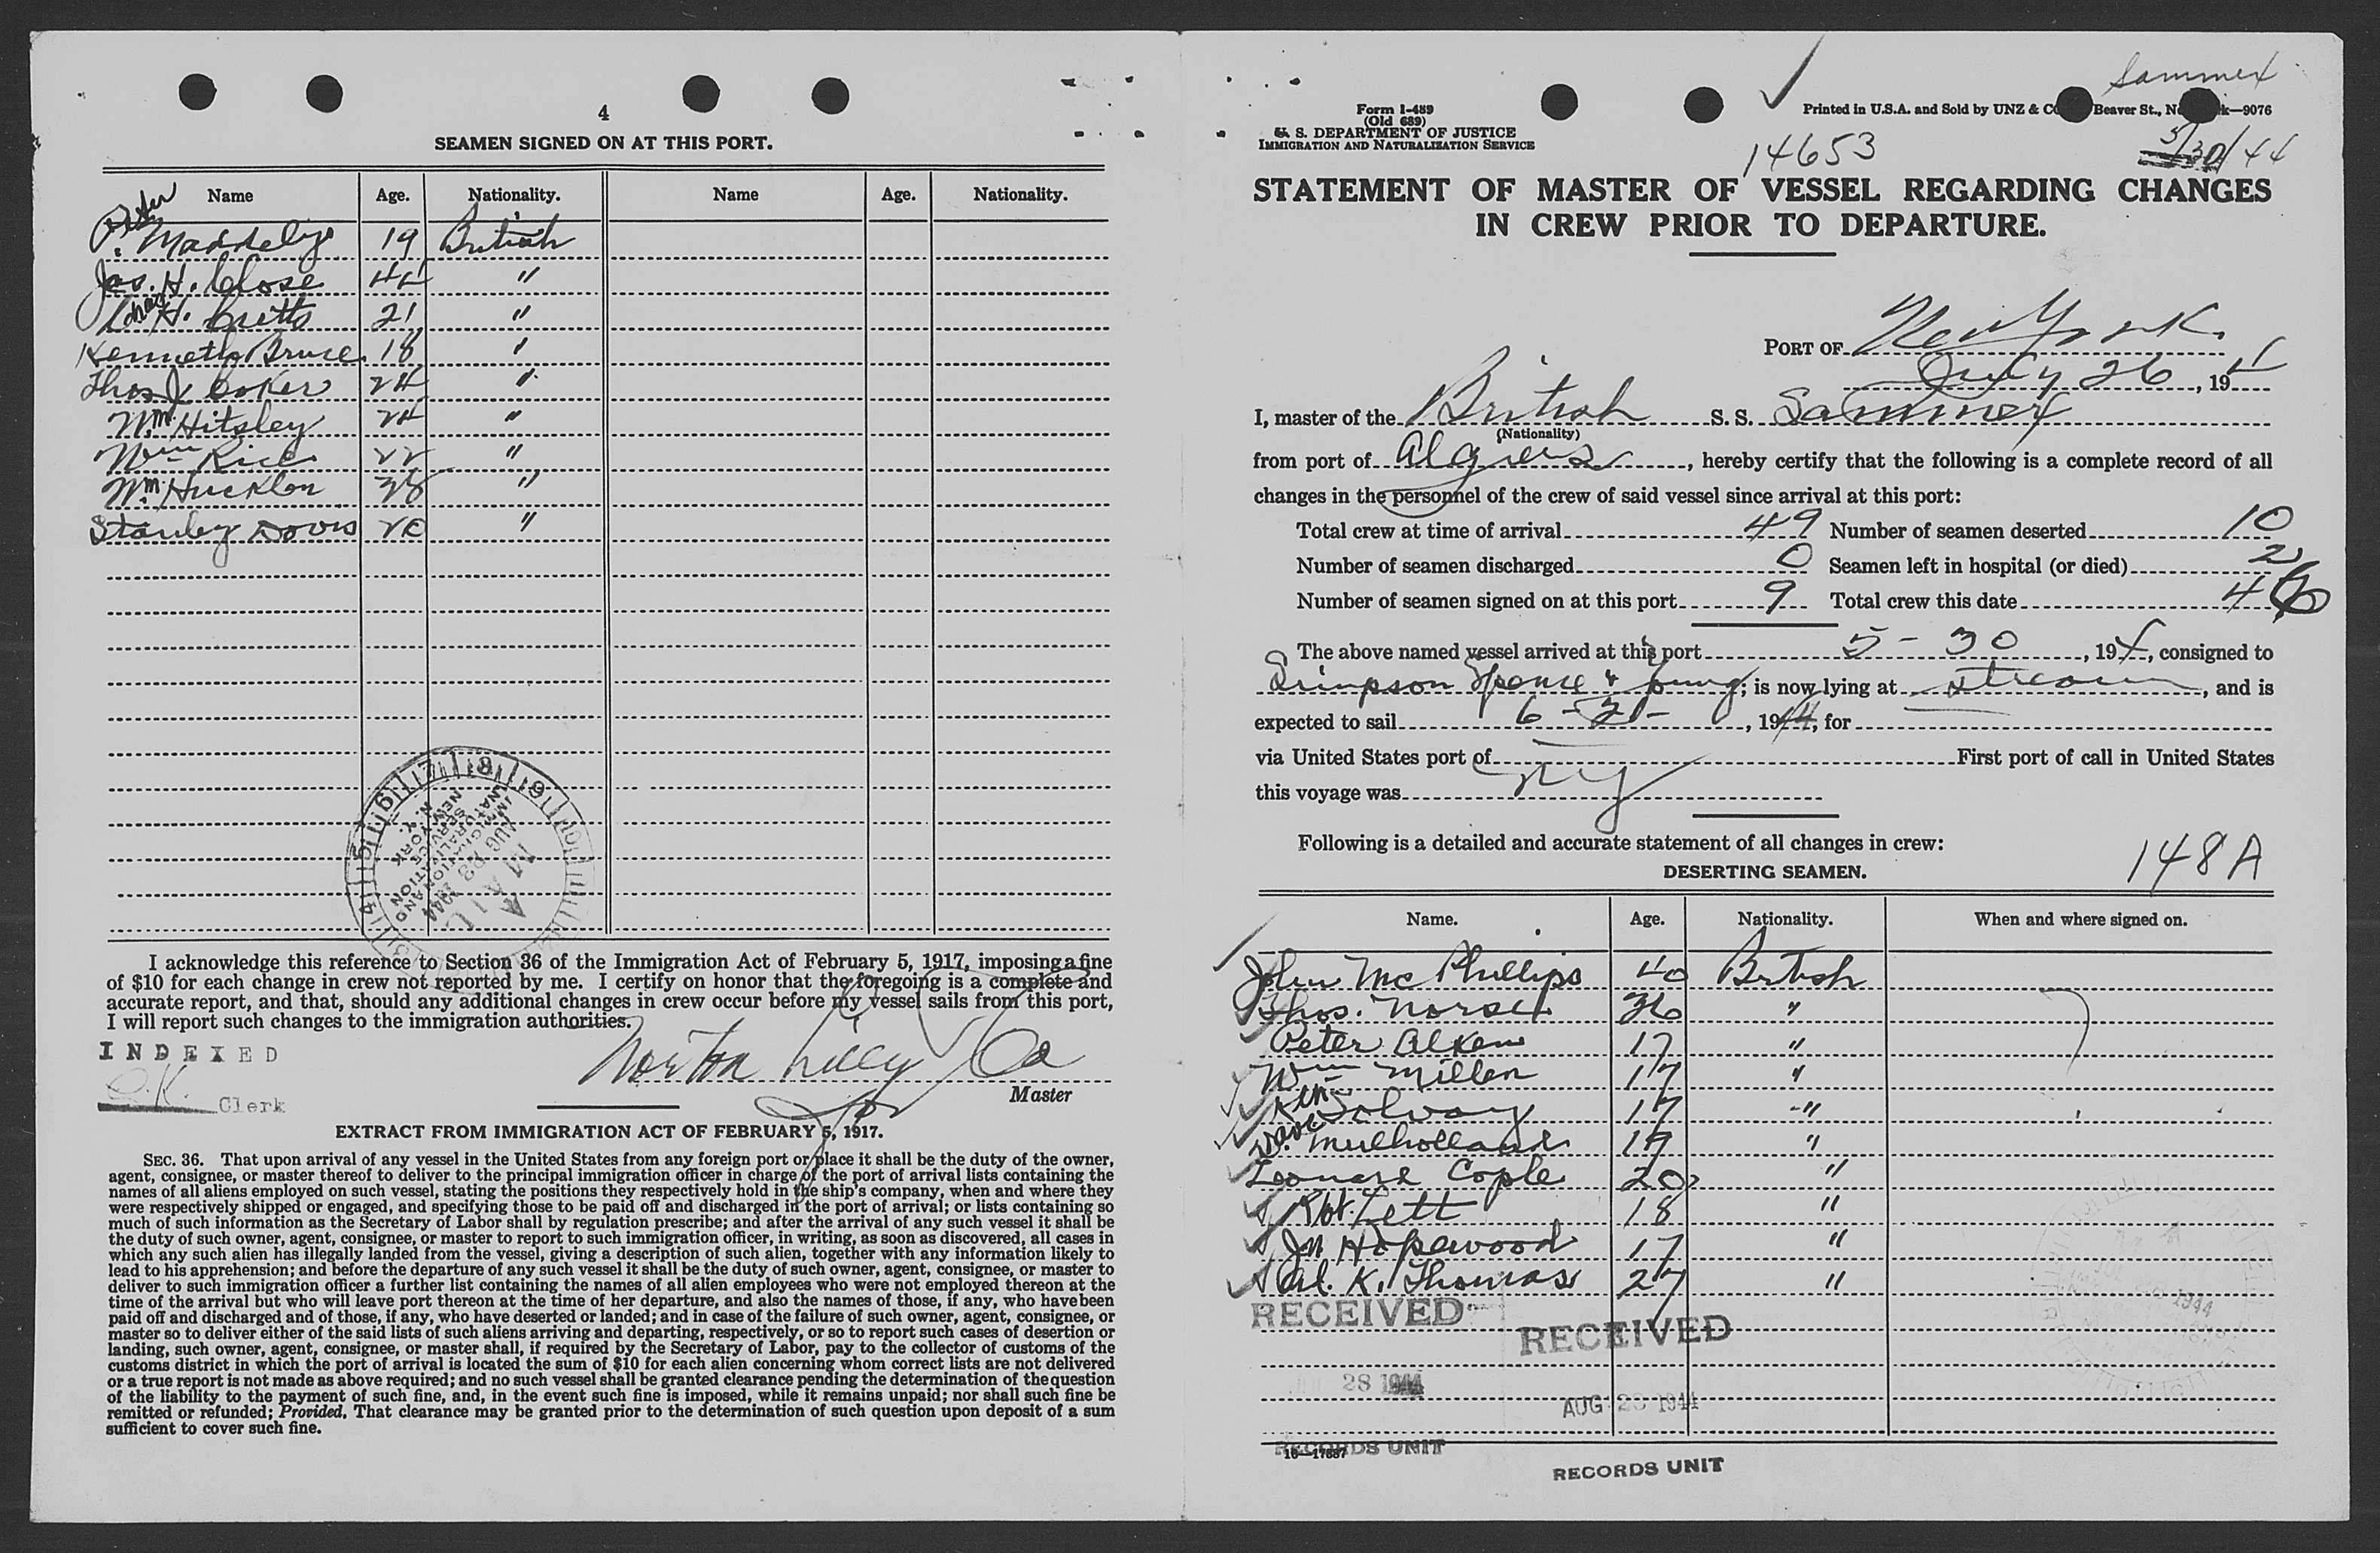 4
SEAMEN SIGNED ON AT THIS PORT.
Name Age. Nationality. Name Age. Nationality.
Peter
P. 19 British
Jas. H. Close "
Chas. H. Britts 21 "
Kenneth Bruce 18 "
Thos J. Coker 24 "
Wm. Hitsley 24 "
Wm Rice 22 "
Wm. Huckton 38 "
Stanley Dovis 20 "
MAIL
AUG 28 1944
IMMIGRATION AND
NATURALIZATION
SERVICE
NEW YORK
N. Y.
I acknowledge this reference to Section 36 of the Immigration Act of February 5, 1917, imposing a fine
of $10 for each change in crew not reported by me. I certify on honor that the foregoing is a complete and
accurate report, and that, should any additional changes in crew occur before my vessel sails from this port,
I will report such changes to the immigration authorities.
INDEXED
Norton Lilly Co
Master
Clerk
EXTRACT FROM IMMIGRATION ACT OF FEBRUARY 5, 1917.
SEC. 36. That upon arrival of any vessel in the United States from any foreign port or place it shall be the duty of the owner,
agent, consignee, or master thereof to deliver to the principal immigration officer in charge of the port of arrival lists containing the
names of all aliens employed on such vessel, stating the positions they respectively hold in the ship's company, when and where they
were respectively shipped or engaged, and specifying those to be paid off and discharged in the port of arrival; or lists containing so
much of such information as the Secretary of Labor shall by regulation prescribe; and after the arrival of any such vessel it shall be
the duty of such owner, agent, consignee, or master to report to such immigration officer, in writing, as soon as discovered, all cases in
which any such alien has illegally landed from the vessel, giving a description of such alien, together with any information likely to
lead to his apprehension; and before the departure of any such vessel it shall be the duty of such owner, agent, consignee, or master to
deliver to such immigration officer a further list containing the names of all alien employees who were not employed thereon at the
time of the arrival but who will leave port thereon at the time of her departure, and also the names of those, if any, who have been
paid off and discharged and of those, if any, who have deserted or landed; and in case of the failure of such owner, agent, consignee, or
master so to deliver either of the said lists of such aliens arriving and departing, respectively, or so to report such cases of desertion or
landing, such owner, agent, consignee, or master shall, if required by the Secretary of Labor, pay to the collector of customs of the
customs district in which the port of arrival is located the sum of $10 for each alien concerning whom correct lists are not delivered
or a true report is not made as above required; and no such vessel shall be granted clearance pending the determination of the question
of the liability to the payment of such fine, and, in the event such fine is imposed, while it remains unpaid; nor shall such fine be
remitted or refunded; Provided, That clearance may be granted prior to the determination of such question upon deposit of a sum
sufficient to cover such fine.
Sammex
Form I-489
(Old 689)
U. S. DEPARTMENT OF JUSTICE
IMMIGRATION AND NATURALIZATION SERVICE
Printed in U.S.A. and Sold by UNZ & Co Beaver St., Ne k—9076
14653
5/30/44
STATEMENT OF MASTER OF VESSEL REGARDING CHANGES
IN CREW PRIOR TO DEPARTURE.
PORT OF New York
July 26, 194
I, master of the British S. S. Sammex
(Nationality)
from port of Algiers, hereby certify that the following is a complete record of all
changes in the personnel of the crew of said vessel since arrival at this port:
Total crew at time of arrival 49 Number of seamen deserted 10
Number of seamen discharged 0 Seamen left in hospital (or died) 2
Number of seamen signed on at this port 9 Total crew this date 46
The above named vessel arrived at this port 5-30, 194, consigned to
Simpson Spence & Young; is now lying at stream, and is
expected to sail 6-21-, 1944, for
via United States port of First port of call in United States
this voyage was NY
Following is a detailed and accurate statement of all changes in crew:
148A
DESERTING SEAMEN.
Name. Age. Nationality. When and where signed on.
John McPhillips 40 British
Thos. Norse 36 "
Peter Alken 17 "
Wm Millen 17 "
Ken Solway 17 "
Dave Mulholland 19 "
Leonard Cople 20 "
Rbt. Lett 18 "
Jn Hopewood 17 "
Al. K. Thomas 27 "
RECEIVED
RECEIVED
28 1944
AUG 28 1944
RECORDS UNIT
16—17887
RECORDS UNIT